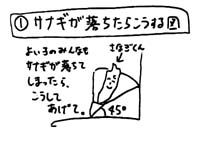 ① サナギが落ちたらこうする図
よい子のみんなも
サナギが落ちて
しまったら、
こうして
あげて。
さなぎくん
45°